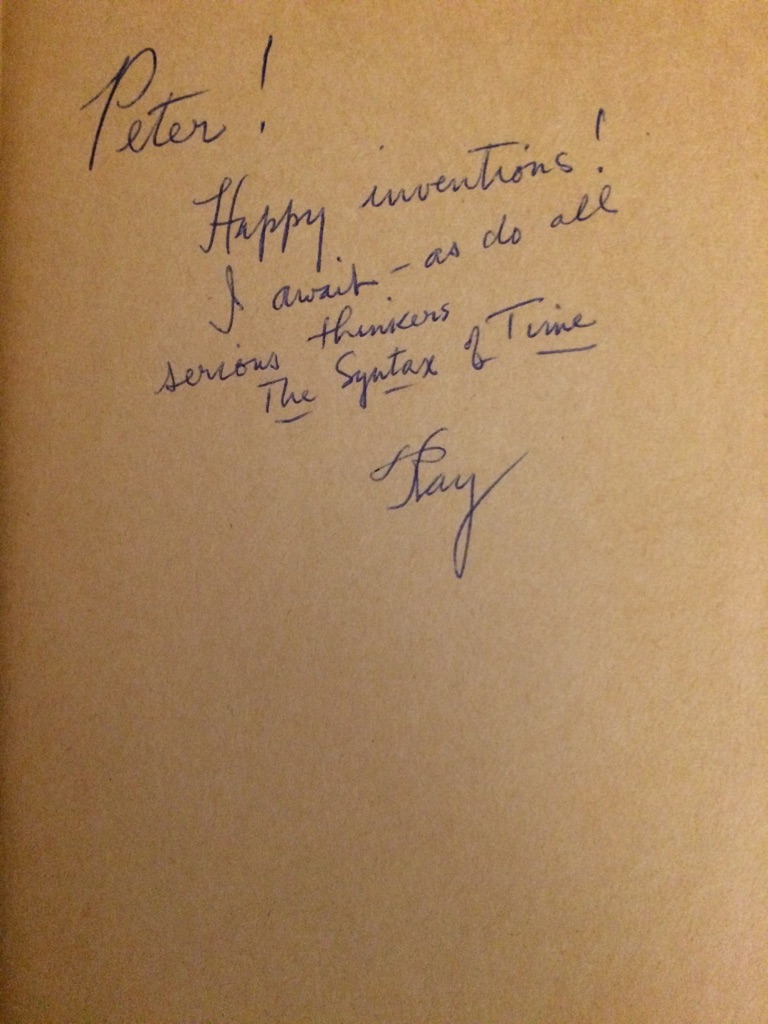 Peter!
Happy inventions!
I await – as do all
serious thinkers
The Syntax of Time
Ray